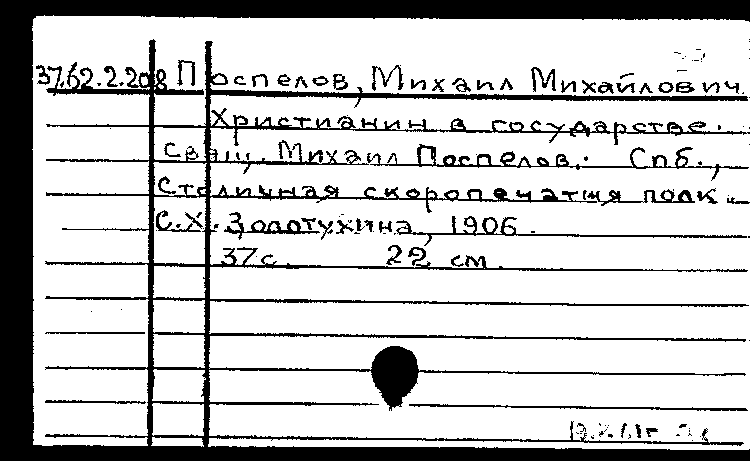 37.62.2.208 Поспелов, Михаил Михайлович.
Христианин в государстве.
Свящ. Михаил Поспелов. Спб.,
Столичная скоропечатня полк.
С.Х. Золотухина, 1906.
37 с. 22 см.